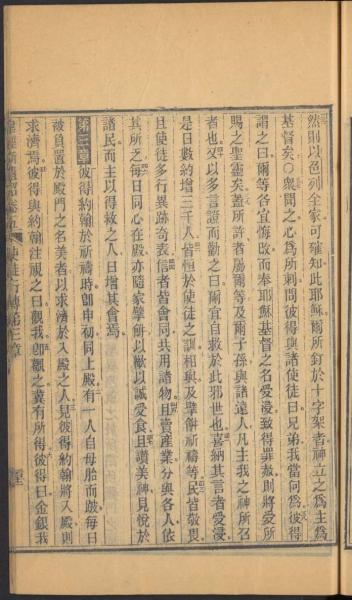 然則以色列全家可確知此耶穌爾所釘於十字架者神立之爲主爲
基督矣○衆聞之心爲所刺問彼得與諸使徒曰兄弟我當何爲彼得
謂之曰爾等各宜悔改而奉耶穌基督之名受浸致得罪赦則將受所
賜之聖靈矣蓋所許者屬爾等及爾子孫與諸遠人凡主我之神所召
者也又以多言證而勸之曰爾宜自救於此邪世也喜納其言者受浸
是日數約增三千人皆恒於使徒之訓相與及擘餅祈禱等民皆敬畏
且使徒多行異跡奇表信者皆會同共用諸物且賣產業分與各人依
其所乏每日同心在殿亦隨家擘餅以歡以誠受食且讚美神見悅於
諸民而主以得救之人日增其會焉
第三章 彼得約翰於祈禱時卽申初同上殿有一人自母胎而跛每日
被負置於殿門之名美者以求濟於入殿之人見彼得約翰將入殿則
求濟焉彼得與約翰注視之曰觀我卽觀之冀有所得彼得曰金銀我
使徒行傳第三章